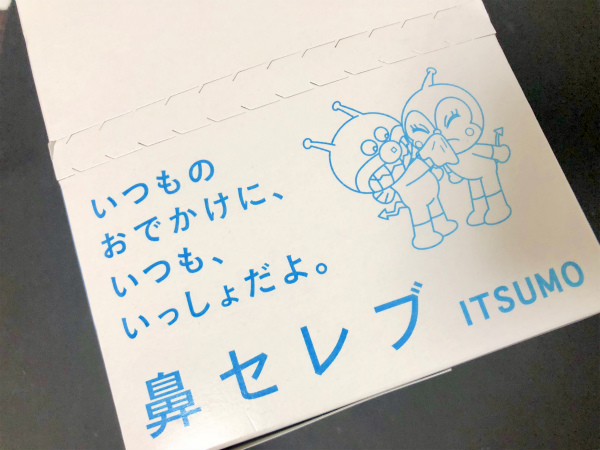 いつもの
おでかけに、
いつも、
いっしょだよ。
鼻セレブ ITSUMO